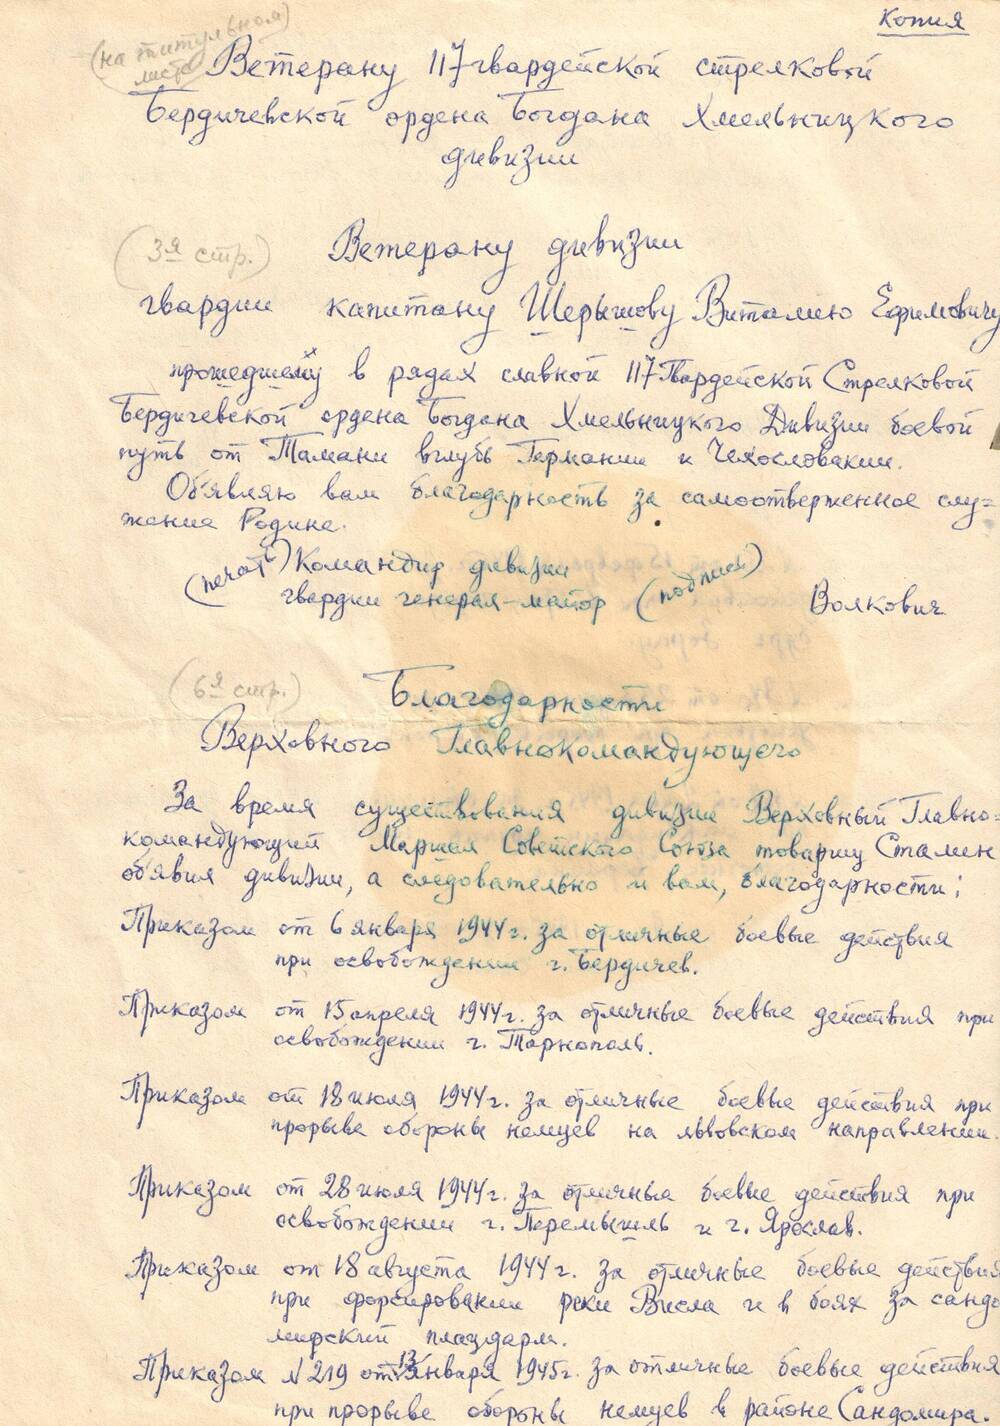 Копия
(на титульном
листе)
Ветерану 117 гвардейской стрелковой
Бердичевской ордена Богдана Хмельницкого
дивизии
(3я стр.)
Ветерану дивизии
гвардии капитану Шерышову Виталию Ефимовичу
прошедшему в рядах славной 117 Гвардейской Стрелковой
Бердичевской ордена Богдана Хмельницкого Дивизии боевой
путь от Тамани вглубь Германии и Чехословакии.
Об'являю вам благодарность за самоотверженное слу=
жение Родине.
(печать) Командир дивизии
гвардии генерал-майор (подпись) Волкович
(6я стр.)
Благодарности
Верховного Главнокомандующего
За время существования дивизии Верховный Главно=
командующий Маршал Советского Союза товарищ Сталин
об'явил дивизии, а следовательно и вам, благодарности:
Приказом от 6 января 1944 г. за отличные боевые действия
при освобождении г. Бердичев.
Приказом от 15 апреля 1944 г. за отличные боевые действия при
освобождении г. Тарнополь.
Приказом от 18 июля 1944 г. за отличные боевые действия при
прорыве обороны немцев на львовском направлении.
Приказом от 28 июля 1944 г. за отличные боевые действия при
освобождении г. Перемышль и г. Ярослав.
Приказом от 18 августа 1944 г. за отличные боевые действия
при форсировании реки Висла и в боях за сандо
мирский плацдарм.
Приказом № 219 от 13 января 1945 г. за отличные боевые действия
при прорыве обороны немцев в районе Сандомира.